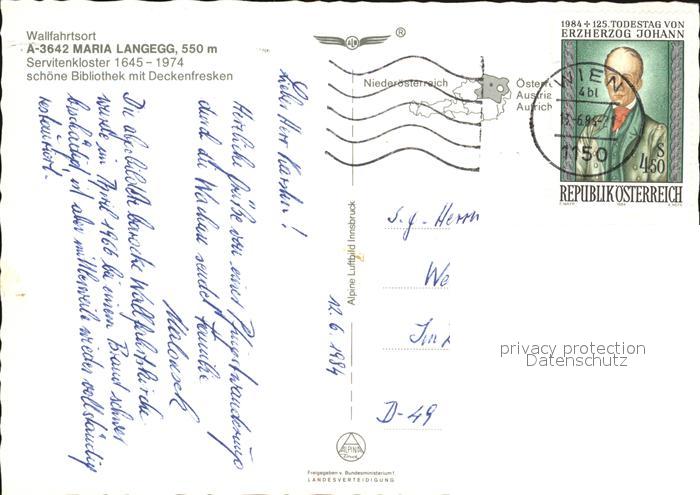 Wallfahrtsort
A-3642 MARIA LANGEGG, 550 m
Servitenkloster 1645 – 1974
schöne Bibliothek mit Deckenfresken
®
Niederösterreich
1984 + 125. TODESTAG VON
ERZHERZOG JOHANN
WIEN
1150
S
4.50
REPUBLIK ÖSTERREICH
Lieber Herr
Herzliche Grüße von einer Pfingstwanderung
durch die Wachau sendet Familie
Die abgebildete barocke Wallfahrtskirche
wurde im April 1966 bei einem Brand schwer
beschädigt, ist aber mittlerweile wieder vollständig
restauriert.
12. 6. 1984
Alpine Luftbild Innsbruck
S. g. Herrn
We
D-49
privacy protection
Datenschutz
ALPINA
Freigegeben v. Bundesministerium f.
LANDESVERTEIDIGUNG